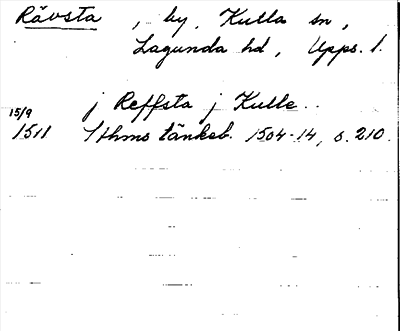 Rävsta, by, Kulla sn,
Lagunda hd, Upps. l.
j Reffsta j Kulle..
15/9
1511 Sthms tänkeb. 1504-14, s. 210.